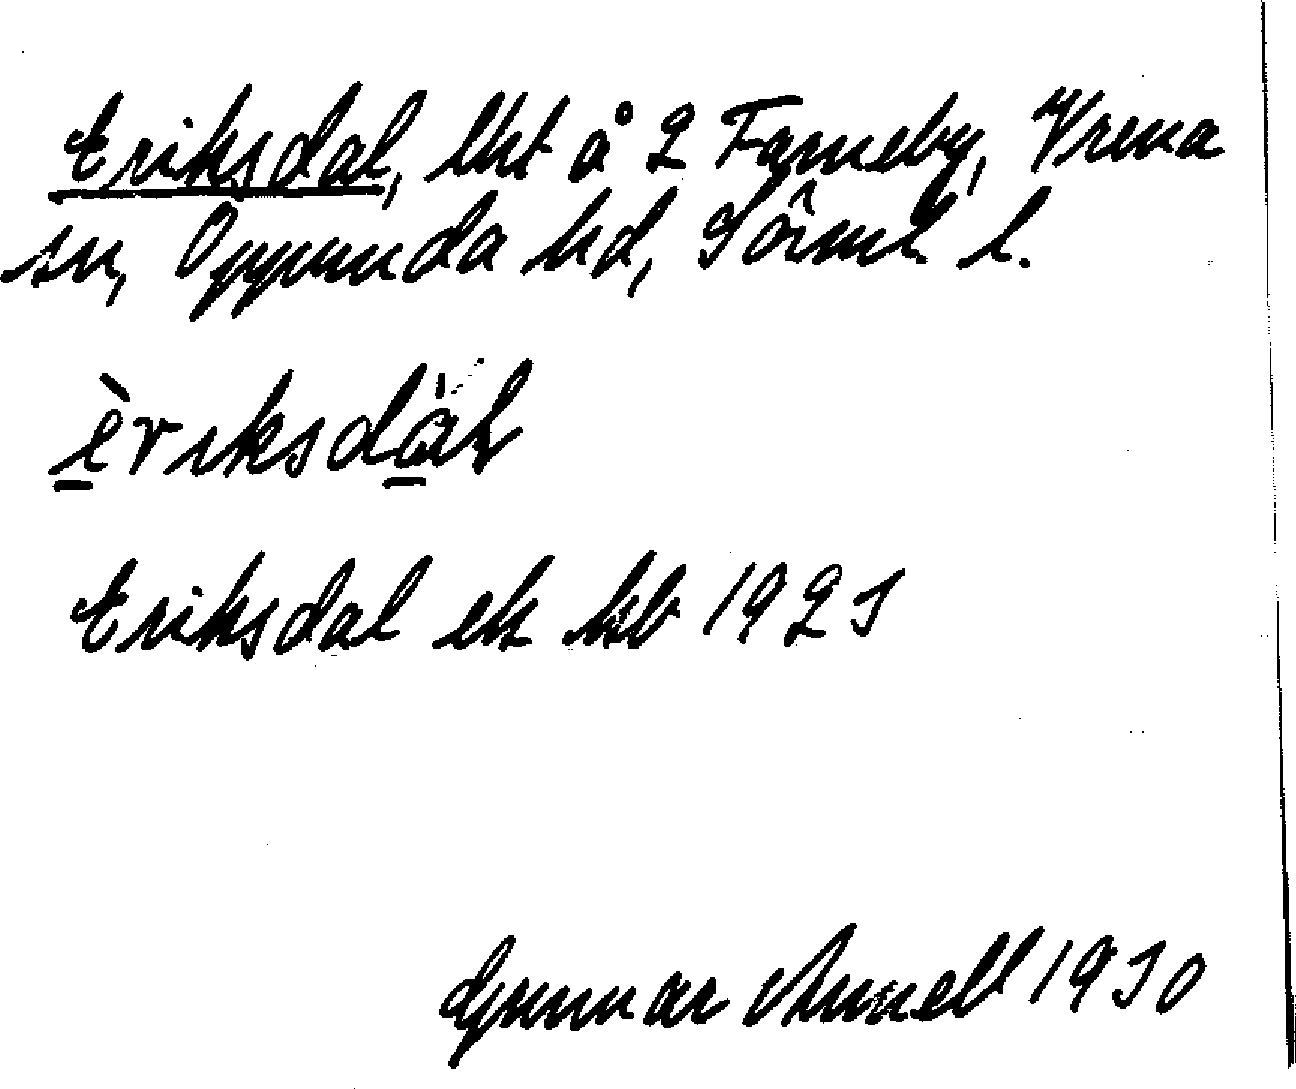 Eriksdal, lht å 2 Farneby, Vrena
sn, Oppunda hd, Sörml. l.
èriksdàl
Eriksdal ek kb 1925
Gunnar Amnell 1930